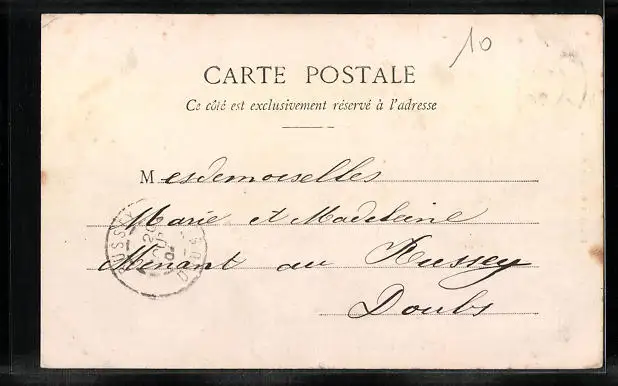 10
CARTE POSTALE
Ce côté est exclusivement réservé à l'adresse
Mesdemoiselles
Marie et Madeleine
Menant au Russey
Doubs